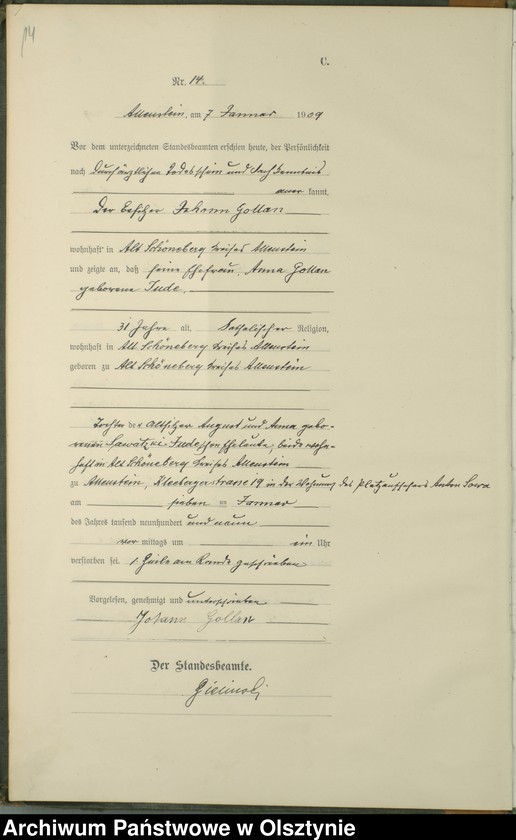 14
C.
Nr. 14.
Allenstein, am 7 Januar 1909
Vor dem unterzeichneten Standesbeamten erschien heute, der Persönlichkeit
nach durch ärztlichen Todesschein und Sach kenntnis
aner kannt,
Der Besitzer Johann Gollan
wohnhaft in Alt Schöneberg Kreises Allenstein
und zeigte an, daß seine Ehefrau Anna Gollan
geborene Jude.
31 Jahre alt, Katholischer Religion,
wohnhaft in Alt Schöneberg Kreises Allenstein
geboren zu Alt Schöneberg Kreises Allenstein
Tochter der Altsitzer August und Anna gebo-
renen Jude'schen Eheleute, beide wohn-
haft in Alt Schöneberg Kreises Allenstein
zu Allenstein, Kleebergerstrasse 19 in der Wohnung des Platzaufsehers Anton Sowa
am sieben ten Januar
des Jahres tausend neunhundert und neun
vor mittags um ein Uhr
verstorben sei. 1 Zeile am Rande geschrieben
Vorgelesen, genehmigt und unterschrieben
Johann Gollan
Der Standesbeamte.
Archiwum Państwowe w Olsztynie